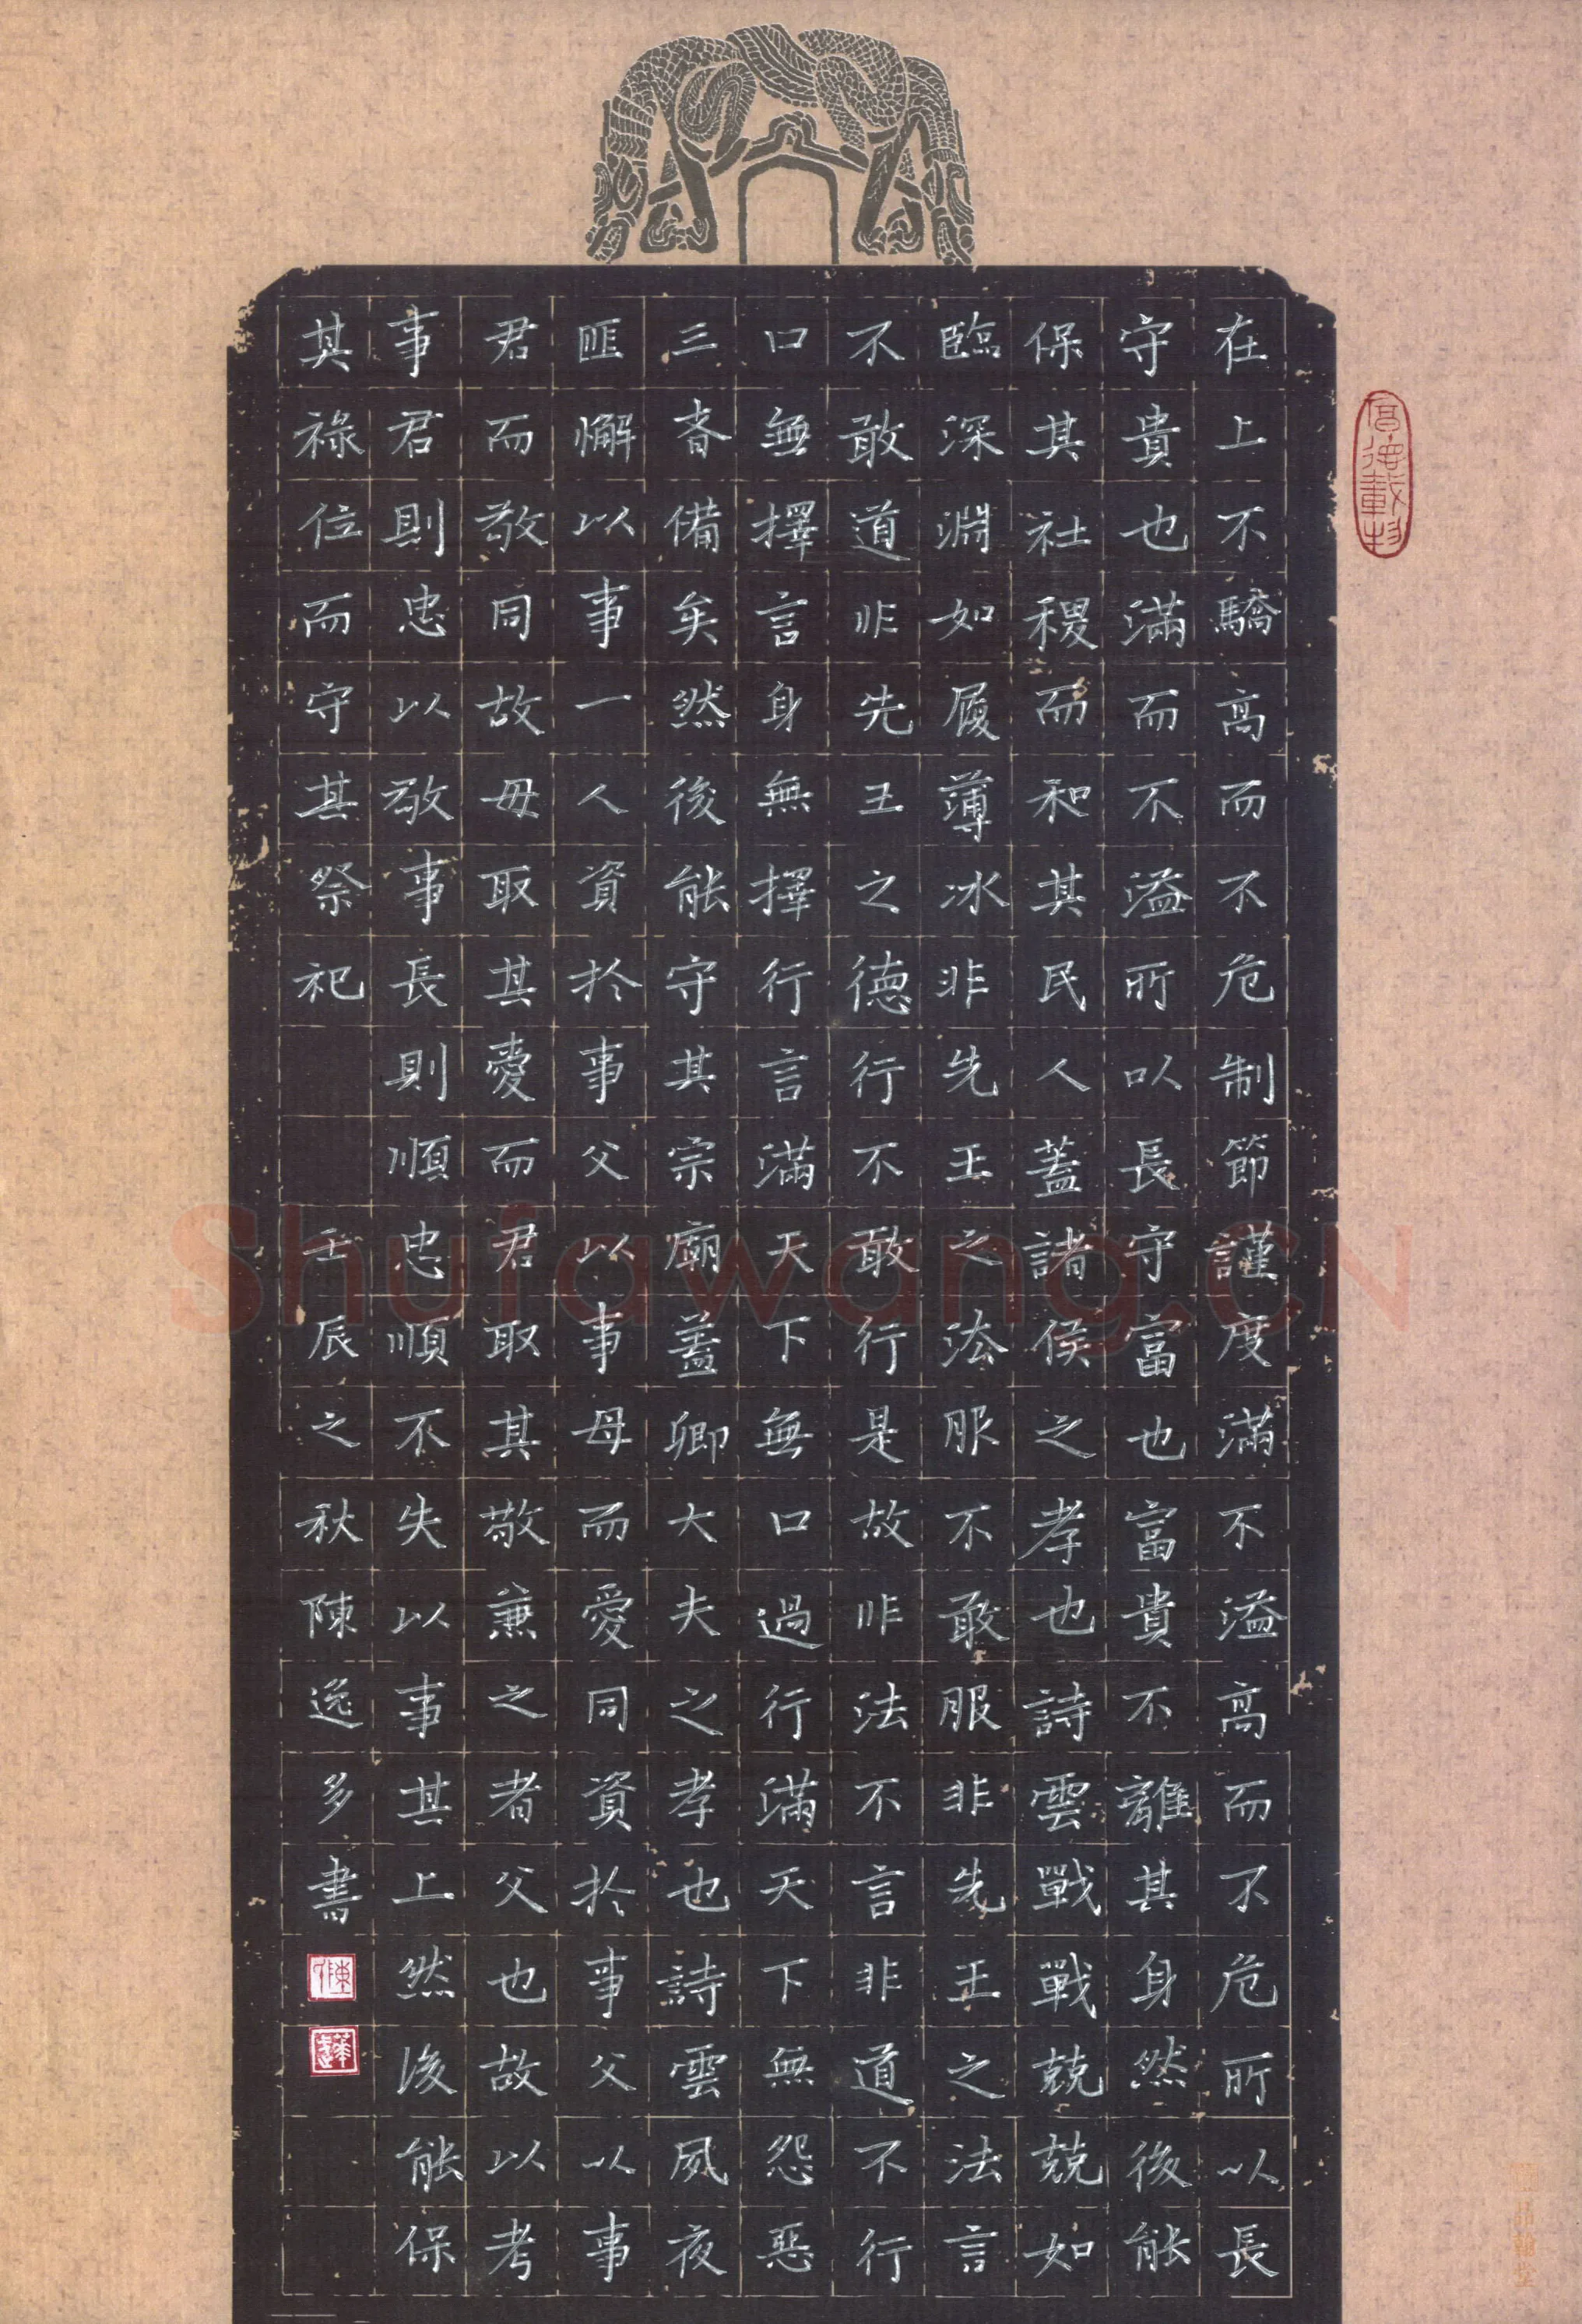 在上不驕高而不危制節謹度滿不溢高而不危所以長
守貴也滿而不溢所以長守富也富貴不離其身然後能
保其社稷而和其民人蓋諸侯之孝也詩雲戰戰兢兢如
臨深淵如履薄冰非先王之法服不敢服非先王之法言
不敢道非先王之德行不敢行是故非法不言非道不行
口無擇言身無擇行言滿天下無口過行滿天下無怨惡
三者備矣然後能守其宗廟蓋卿大夫之孝也詩雲夙夜
匪懈以事一人資於事父以事母而愛同資於事父以事
君而敬同故母取其愛而君取其敬兼之者父也故以孝
事君則忠以敬事長則順忠順不失以事其上然後能保
其祿位而守其祭祀
壬辰之秋陳逸多書
厚德載物
Shufawang.CN